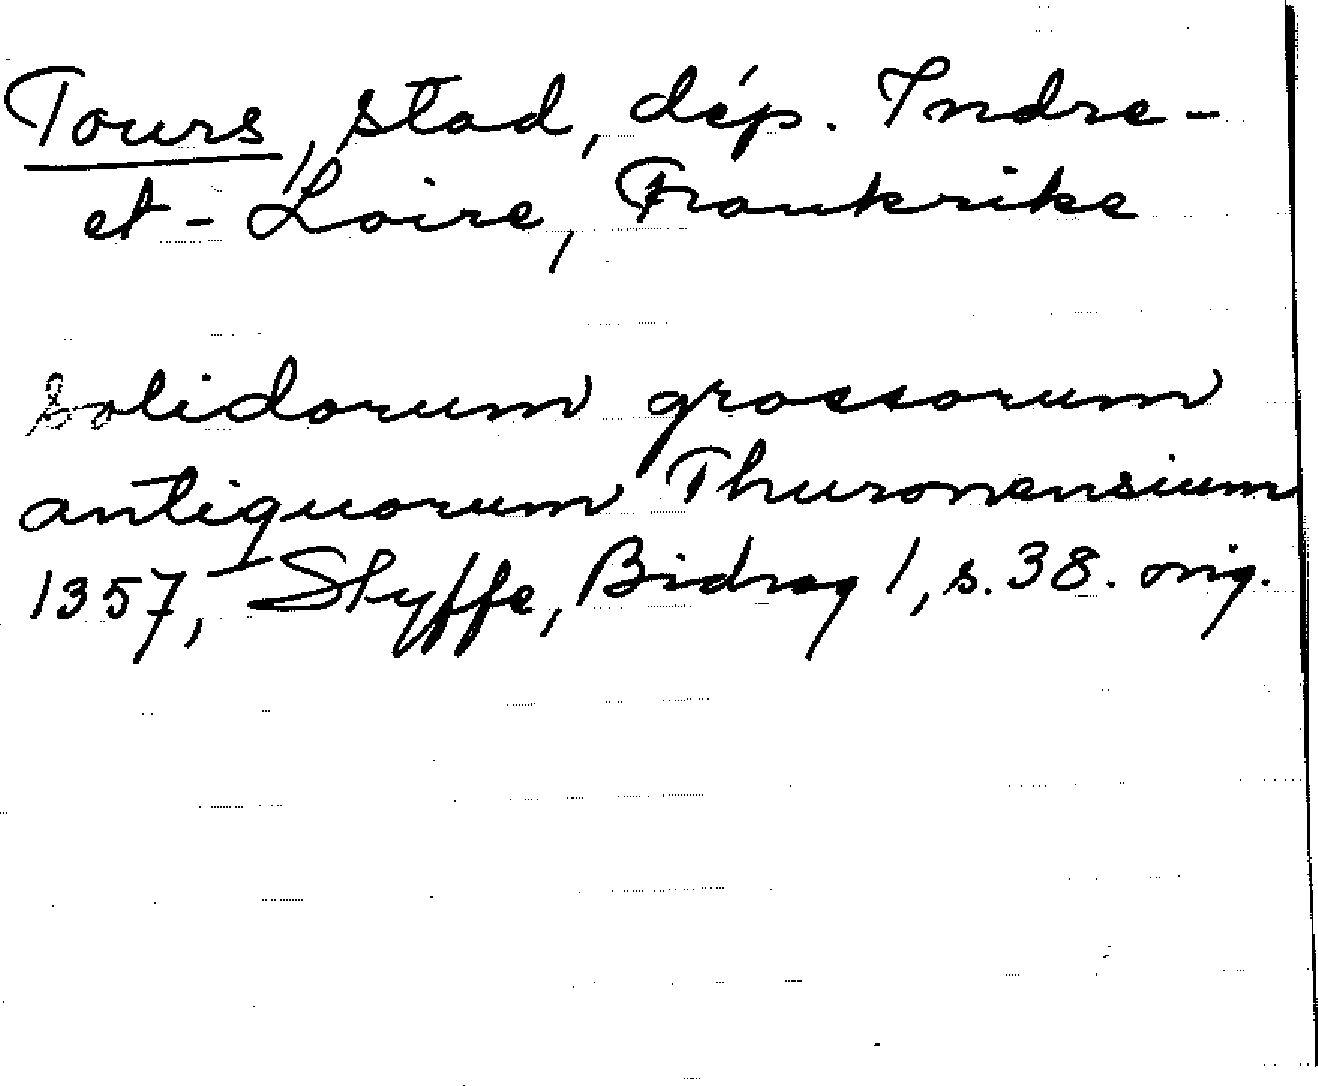 Tours, stad, dép. Indre-
et-Loire, Frankrike
solidorum grossorum
antiquorum Thuronensium
1357, Styffe, Bidrag 1, s. 38. orig.